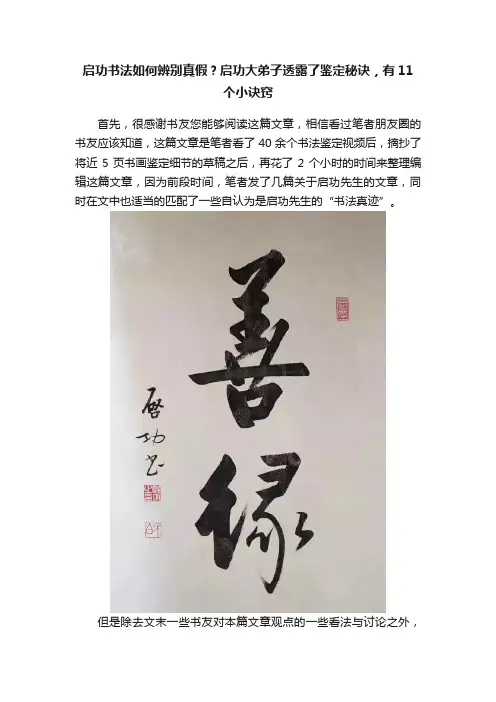 启功书法如何辨别真假？启功大弟子透露了鉴定秘诀，有11
个小诀窍
首先，很感谢书友您能够阅读这篇文章，相信看过笔者朋友圈的
书友应该知道，这篇文章是笔者看了 40 余个书法鉴定视频后，摘抄了
将近 5 页书画鉴定细节的草稿之后，再花了 2 个小时的时间来整理编
辑这篇文章，因为前段时间，笔者发了几篇关于启功先生的文章，同
时在文中也适当的匹配了一些自认为是启功先生的“书法真迹”。
善
缘
启功书
但是除去文末一些书友对本篇文章观点的一些看法与讨论之外，